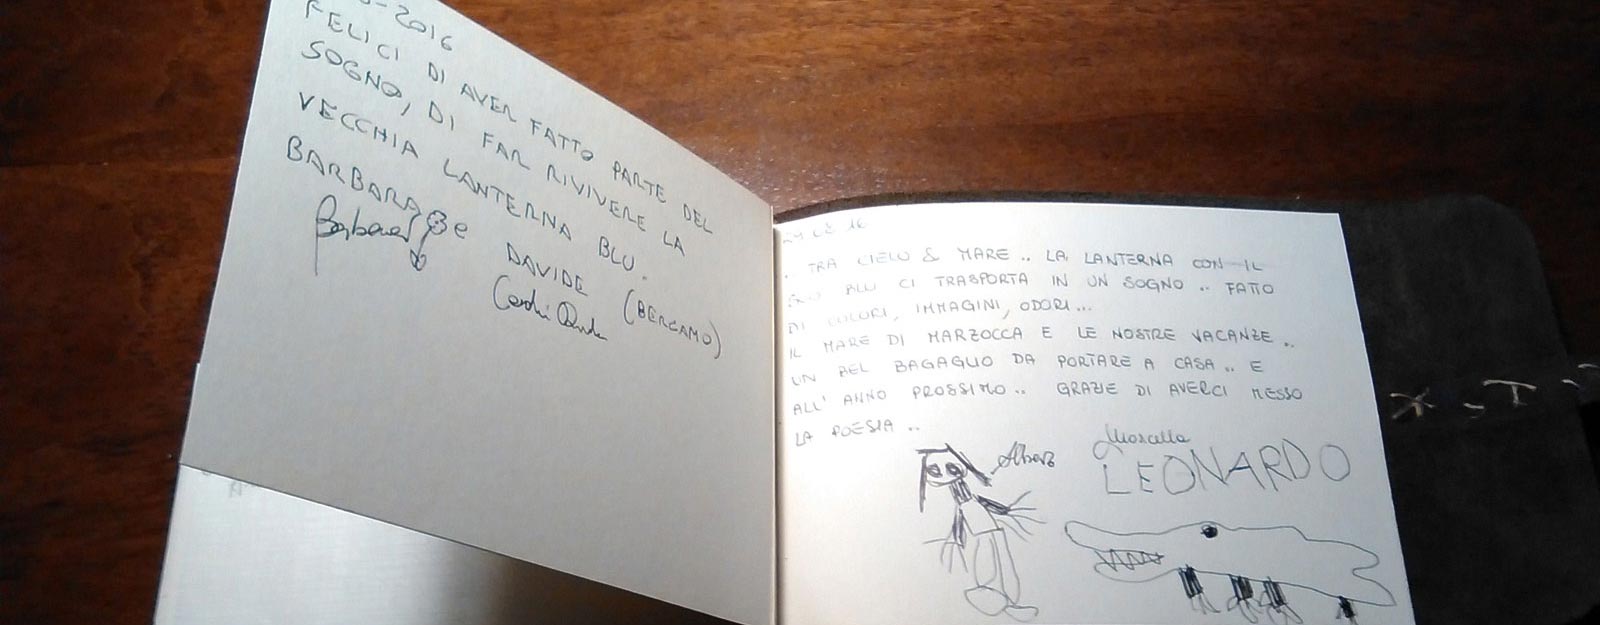 -2016
FELICI DI AVER FATTO PARTE DEL
SOGNO, DI FAR RIVIVERE LA
VECCHIA LANTERNA BLU.
BARBARA e DAVIDE (BERGAMO)
Barbara
.. TRA CIELO & MARE .. LA LANTERNA CON IL
BLU CI TRASPORTA IN UN SOGNO .. FATTO
DI COLORI, IMMAGINI, ODORI...
IL MARE DI MARZOCCA E LE NOSTRE VACANZE ..
UN BEL BAGAGLIO DA PORTARE A CASA .. E
ALL' ANNO PROSSIMO .. GRAZIE DI AVERCI MESSO
LA POESIA ..
LEONARDO